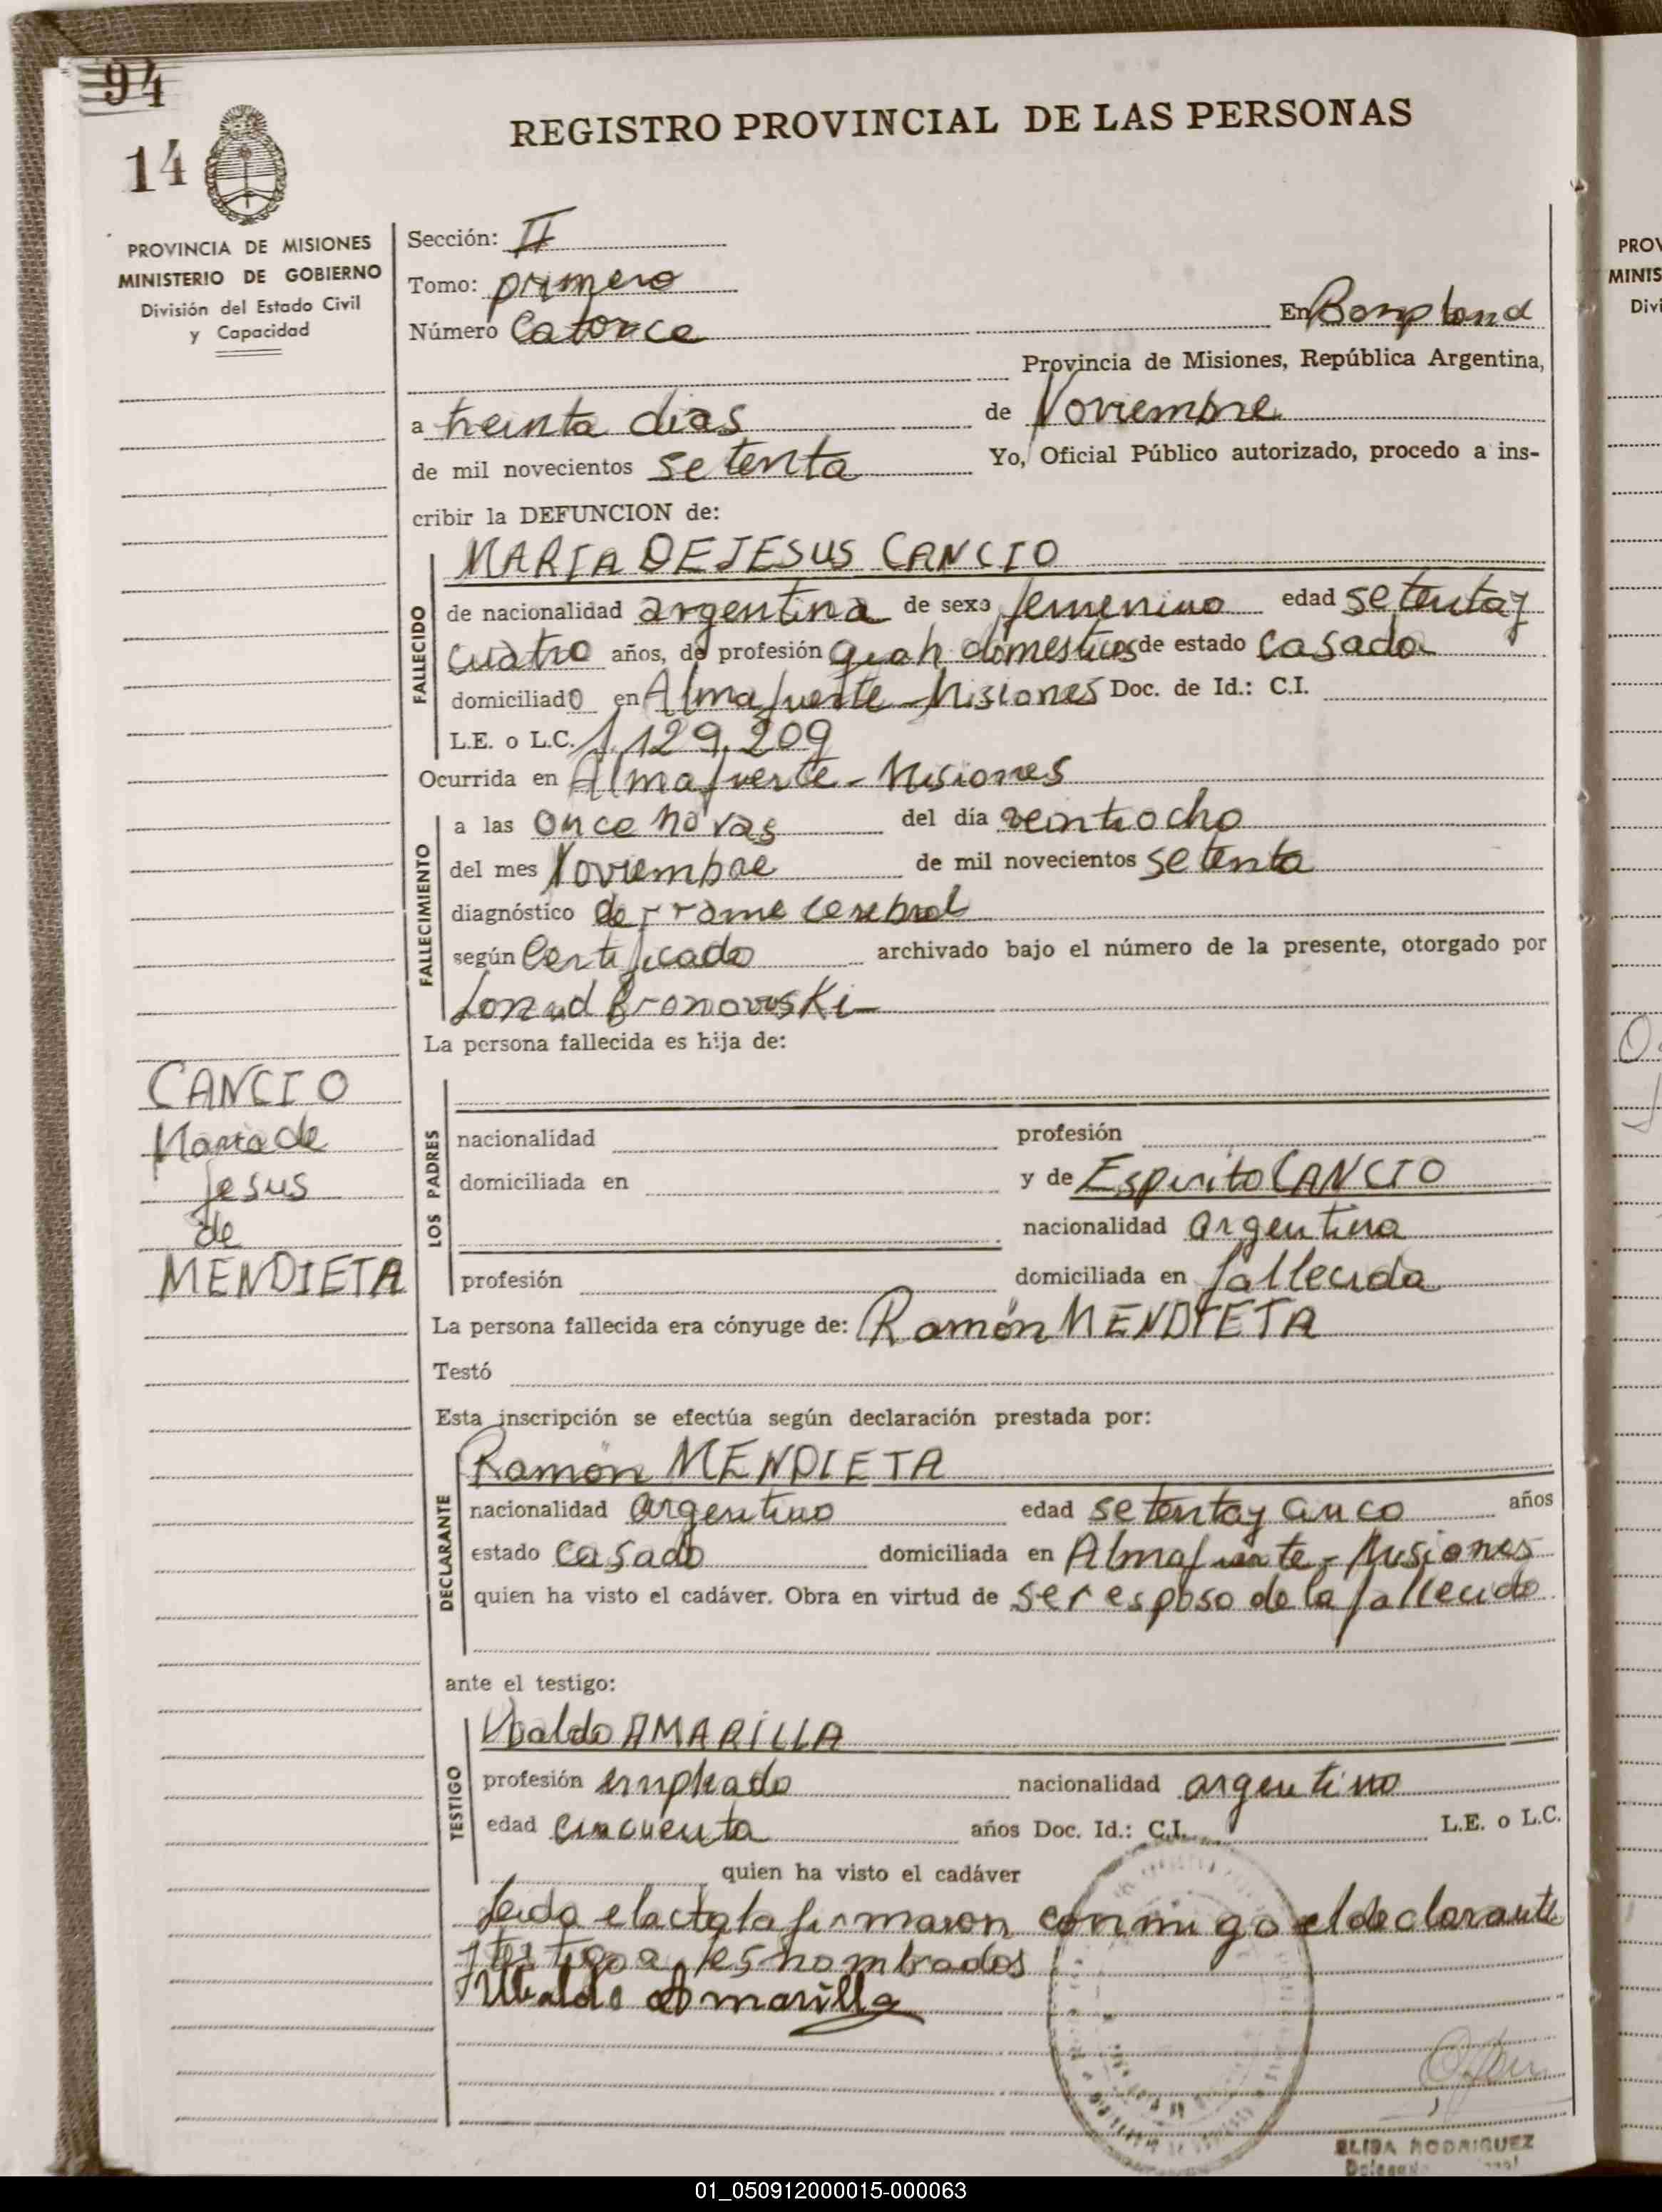 94
14
REGISTRO PROVINCIAL DE LAS PERSONAS
PROVINCIA DE MISIONES
MINISTERIO DE GOBIERNO
División del Estado Civil
y Capacidad
Sección: II
Tomo: primero
Número Catorce En Bonpland
Provincia de Misiones, República Argentina,
a treinta dias de Noviembre
de mil novecientos setenta Yo, Oficial Público autorizado, procedo a ins-
cribir la DEFUNCION de:
MARIA DE JESUS CANCIO
FALLECIDO
de nacionalidad argentina de sexo femenino edad setenta y
cuatro años, de profesión domesticos de estado casada
domiciliado en Almafuerte - Misiones Doc. de Id.: C.I.
L.E. o L.C. 1.129.209
Ocurrida en Almafuerte - Misiones
FALLECIMIENTO
a las once horas del día veintiocho
del mes Noviembre de mil novecientos setenta
diagnóstico derrame cerebral
según Certificado archivado bajo el número de la presente, otorgado por
La persona fallecida es hija de:
CANCIO
Maria de
Jesus
de
MENDIETA
LOS PADRES
nacionalidad profesión
domiciliada en y de Espirito CANCIO
nacionalidad argentina
profesión domiciliada en fallecida
La persona fallecida era cónyuge de: Ramón MENDIETA
Testó
Esta inscripción se efectúa según declaración prestada por:
Ramón MENDIETA
DECLARANTE
nacionalidad argentino edad setenta y cinco años
estado casado domiciliada en Almafuerte - Misiones
quien ha visto el cadáver. Obra en virtud de ser esposo de la fallecida
ante el testigo:
Ubaldo AMARILLA
TESTIGO
profesión empleado nacionalidad argentino
edad cincuenta años Doc. Id.: C.I. L.E. o L.C.
quien ha visto el cadáver
Leida el acta la firmaron conmigo el declarante
y testigo nombrados
Ubaldo Amarilla
ELISA RODRIGUEZ
PROV
MINIS
Divi
01_050912000015-000063